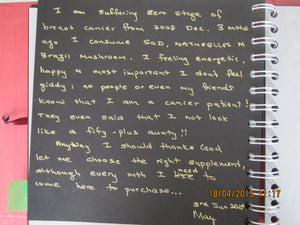 I am suffering zero stage of
breast cancer from 2008 Dec. 3 mths
ago I consume SOD, NATURELLES N
Brazil Mushroom. I feeling energetic,
happy N most important I don't feel
giddy; no people or even my friends
know that I am a cancer patient!
They even said that I not look
like a fifty-plus aunty!!
Anyting I should thanks God
let me choose the right supplement,
although every mth I need to
come here to purchase...
3rd Jun
May
18/04/2015